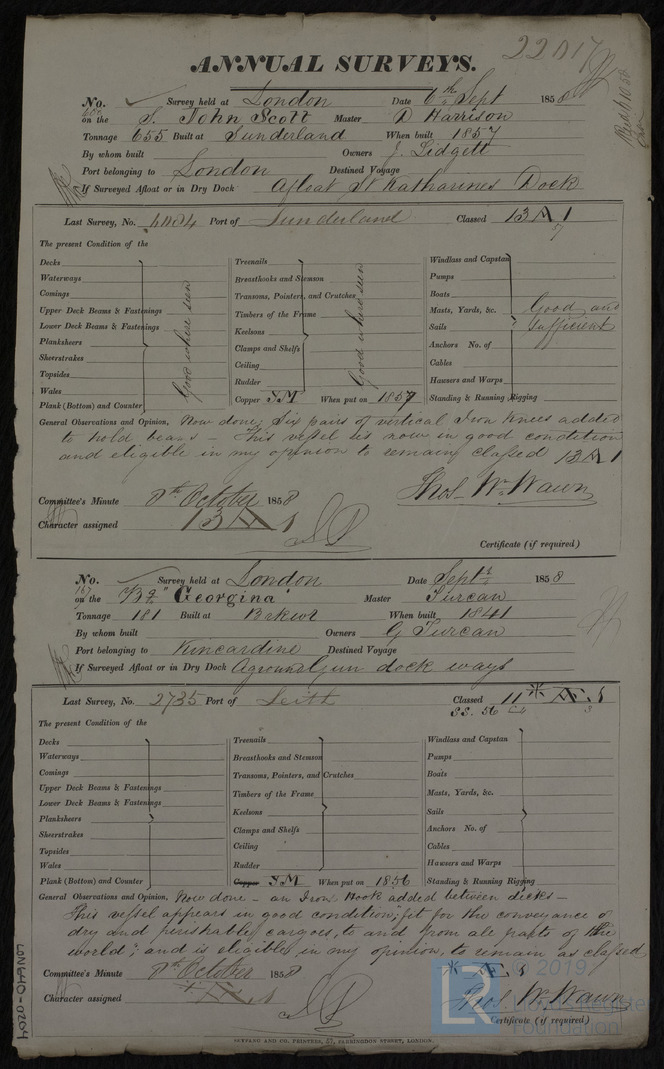 ANNUAL SURVEYS.
No. Survey held at London Date 6th Sept 1858
on the S. John Scott Master D Harrison
Tonnage 655 Built at Sunderland When built 1857
By whom built Owners J. Lidgett
Port belonging to London Destined Voyage
If Surveyed Afloat or in Dry Dock Afloat St Katharines Dock
Last Survey, No. Port of Sunderland Classed 13 A 1
7
The present Condition of the
Decks
Waterways
Comings
Upper Deck Beams & Fastenings
Lower Deck Beams & Fastenings
Planksheers
Sheerstrakes
Topsides
Wales
Plank (Bottom) and Counter
Good where seen
Treenails
Breasthooks and Stemson
Transoms, Pointers, and Crutches
Timbers of the Frame
Keelsons
Clamps and Shelfs
Ceiling
Rudder
Copper YM When put on 1857
Good where seen
Windlass and Capstan
Pumps
Boats
Masts, Yards, &c.
Sails
Anchors No. of
Cables
Hawsers and Warps
Standing & Running Rigging
Good and
Sufficient
General Observations and Opinion, Now done; Six pairs of vertical Iron Knees added
to hold beams – This vessel is now in good condition
and eligible in my opinion to remain classed 13 A 1
Committee's Minute 8th October 1858
Thos. Wm. Wawn
Character assigned 13 A 1
Certificate (if required)
No. Survey held at London Date Sept 1858
167
on the Bg "Georgina" Master Turcan
Tonnage 181 Built at When built 1841
By whom built Owners G Turcan
Port belonging to Kincardine Destined Voyage
If Surveyed Afloat or in Dry Dock Aground Gun dock ways
Last Survey, No. 2735 Port of Leith Classed 11 * Æ 1
SS. 56 3
The present Condition of the
Decks
Waterways
Comings
Upper Deck Beams & Fastenings
Lower Deck Beams & Fastenings
Planksheers
Sheerstrakes
Topsides
Wales
Plank (Bottom) and Counter
Treenails
Breasthooks and Stemson
Transoms, Pointers, and Crutches
Timbers of the Frame
Keelsons
Clamps and Shelfs
Ceiling
Rudder
Copper YM When put on 1856
Windlass and Capstan
Pumps
Boats
Masts, Yards, &c.
Sails
Anchors No. of
Cables
Hawsers and Warps
Standing & Running Rigging
General Observations and Opinion, Now done – an Iron Hook added between decks –
This vessel appears in good condition, "fit for the conveyance of
dry and perishable cargoes, to and from all parts of the
world"; and is eligible in my opinion, to remain as classed
* Æ 1
Committee's Minute 8th October 1858
Thos. W. Wawn
Character assigned
Certificate (if required)
SEYFANG AND CO. PRINTERS, 57, FARRINGDON STREET, LONDON.
LON640-0204
LR © 2019
Lloyd's Register
Foundation